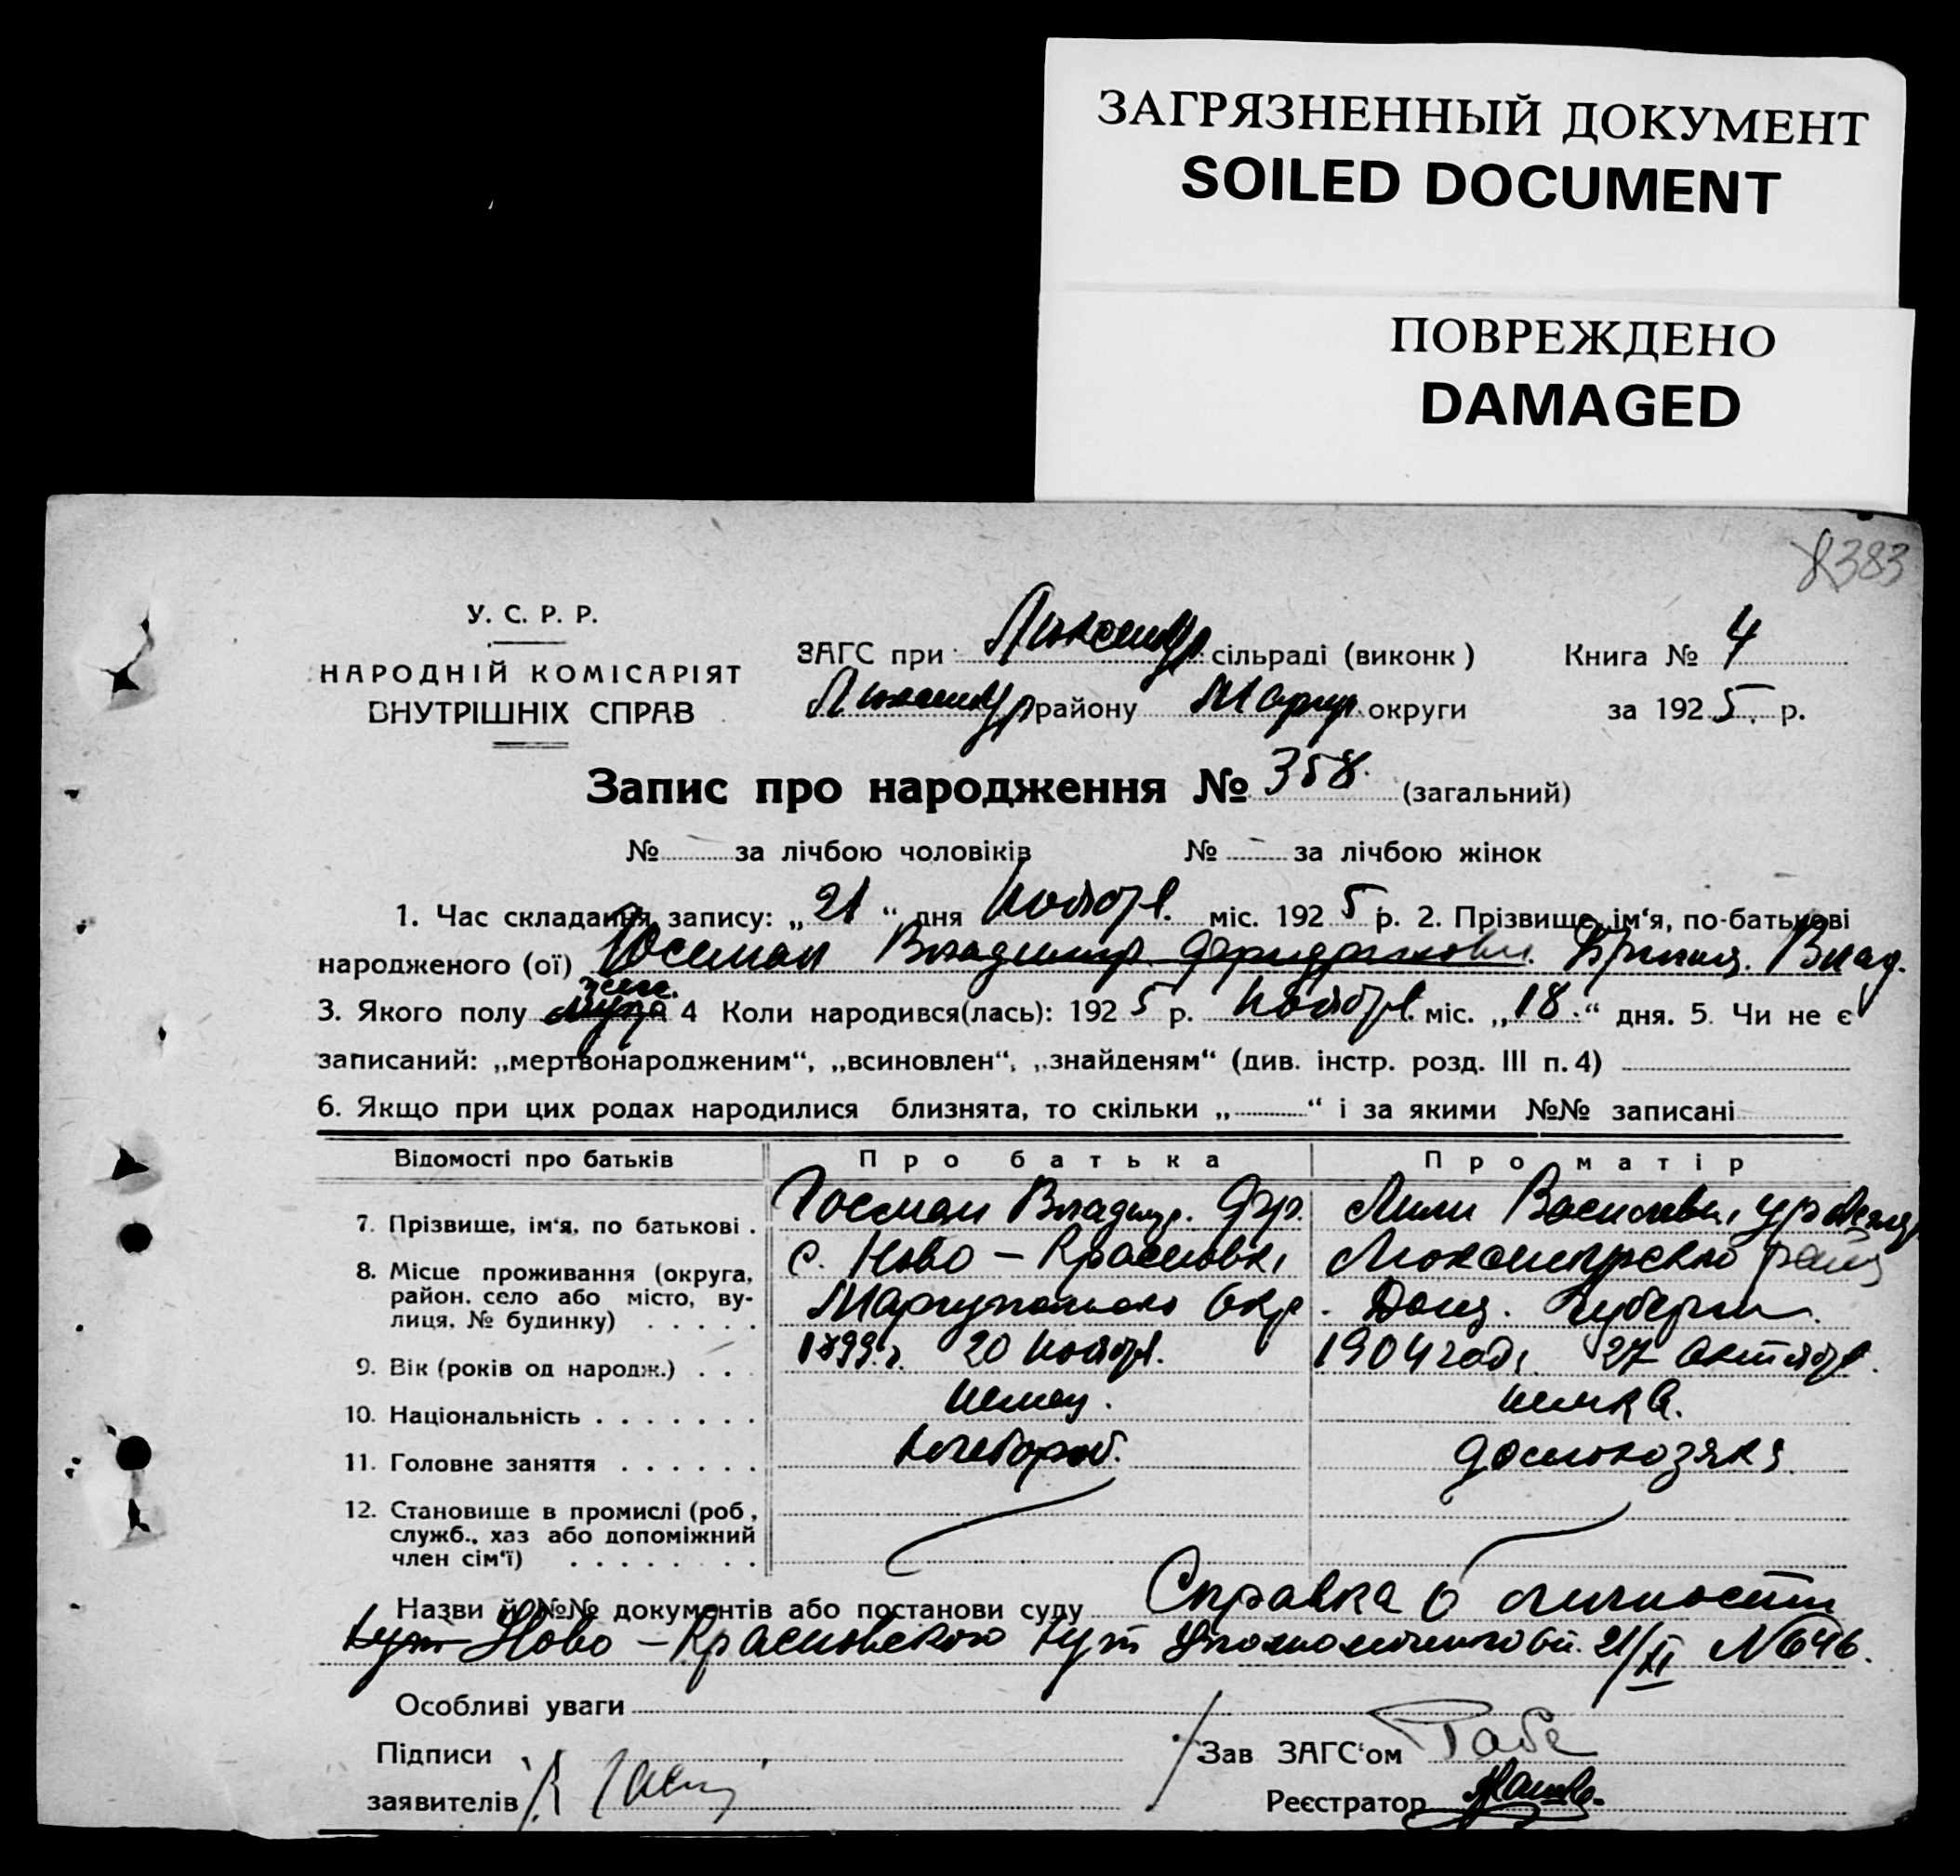 ЗАГРЯЗНЕННЫЙ ДОКУМЕНТ
SOILED DOCUMENT
ПОВРЕЖДЕНО
DAMAGED
8383
У. С. Р. Р.
НАРОДНІЙ КОМІСАРІЯТ
ВНУТРІШНІХ СПРАВ
ЗАГС при сільраді (виконк) Книга № 4
району Мариуп. округи за 1925 р.
Запис про народження № 358. (загальний)
№ за лічбою чоловіків № за лічбою жінок
1. Час складання запису: „21“ дня Ноября міс. 1925 р. 2. Прізвище, ім‘я, по-батькові
народженого (ої) Госман Владимир Влад.
3. Якого полу жен. 4 Коли народився(лась): 1925 р. Ноября міс. „18.“ дня. 5. Чи не є
записаний: „мертвонародженим“, „всиновлен“, „знайденям“ (див. інстр. розд. III п. 4)
6. Якщо при цих родах народилися близнята, то скільки „ “ і за якими №№ записані
Відомості про батьків Про батька Про матір
7. Прізвище, ім‘я, по батькові . Госман Владимр. Фр. Лили Васильевн,
8. Місце проживання (округа, с. Ново – Красновк,
район, село або місто, ву-
лиця, № будинку) . . . . . Мариупольско Окр. Донц. Губерни.
9. Вік (років од народж.) . . . 1899 г. 20 Ноября. 1904 год, 27 Октября.
10. Національність . . . . . . . Немец. немка.
11. Головне заняття . . . . . . Хлебороб. домохозяка.
12. Становище в промислі (роб,
служб., хаз або допоміжний
член сім‘ї) . . . . . . . .
Назви й №№ документів або постанови суду Справка о личности
Ново – Красновского Хут Уполномоченого 21/XI N 646.
Особливі уваги
Підписи Зав ЗАГС‘ом
заявителів Реєстратор